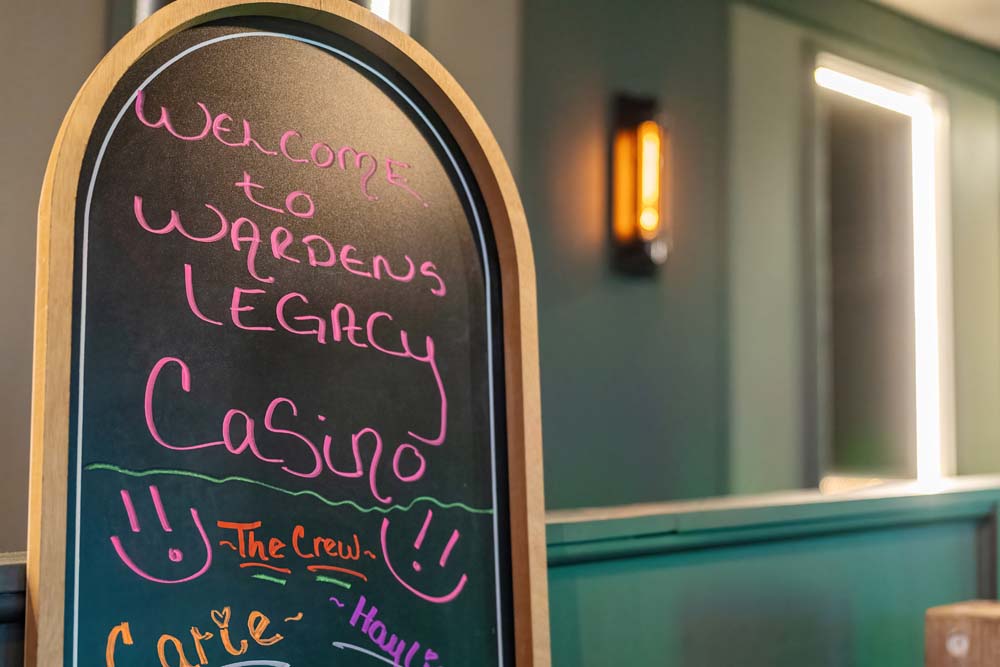 WELCOME
to
WARDENS
LEGACY
Casino
~The Crew~
Carie~